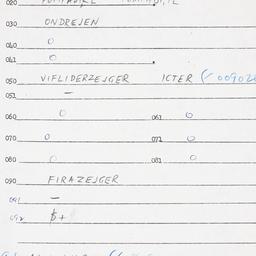 030 ONDREJEN
040 O
041 O
050 VIFLIDERZEJGER ICTER
051 –
060 O 061 O
070 O 071 O
080 O 081 O
090 FIRAZEJGER
091 –
092 $ +